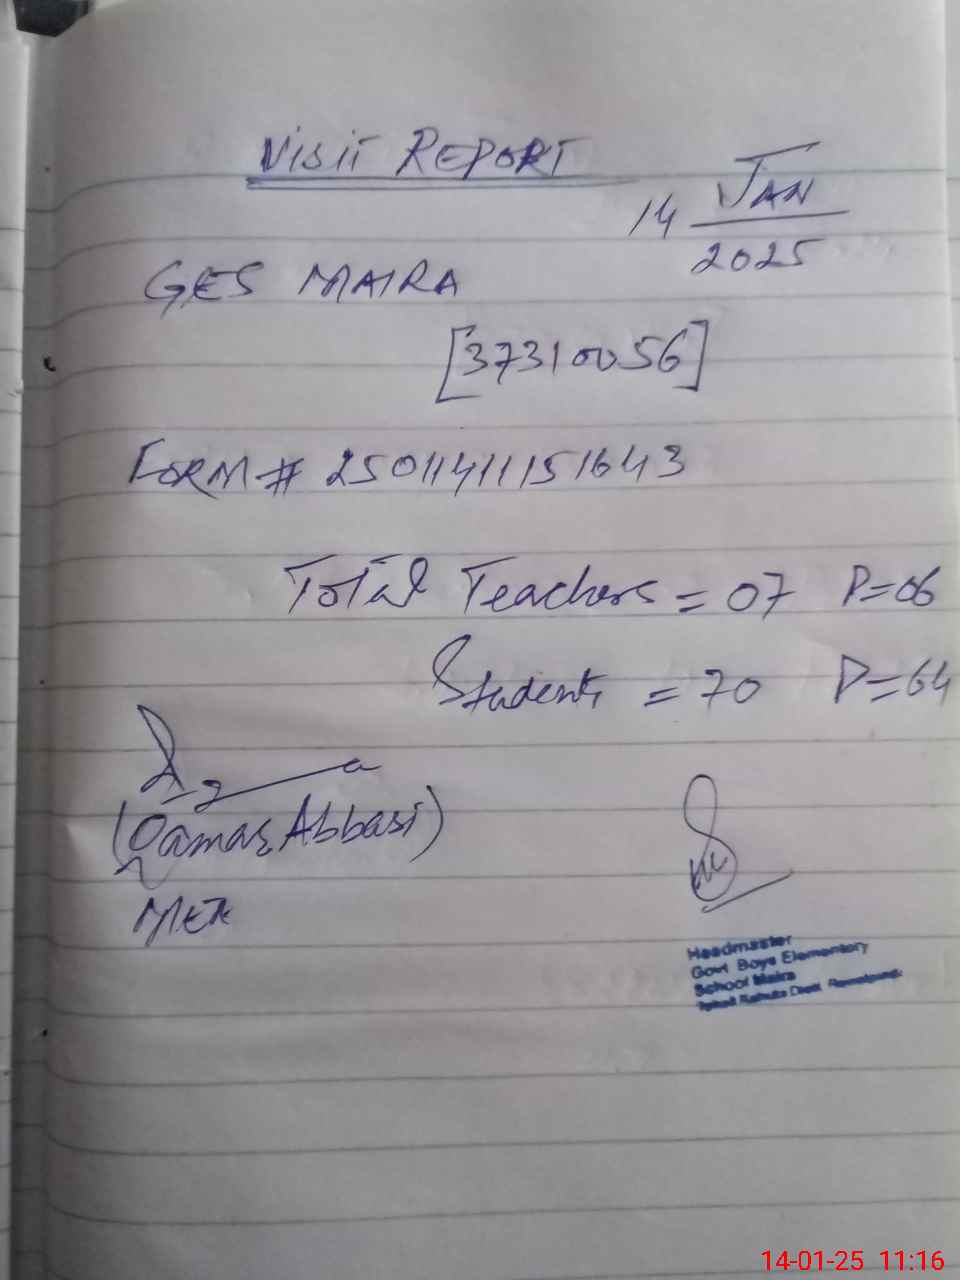 VISIT REPORT
14 JAN
2025
GES MAIRA
[37310056]
FORM # 25011411151643
Total Teachers = 07 P=06
Students = 70 P=64
(Qamar Abbasi)
MEA
Headmaster
Govt Boys Elementary
School Maira
Tehsil Kahuta Distt Rawalpindi
14-01-25 11:16